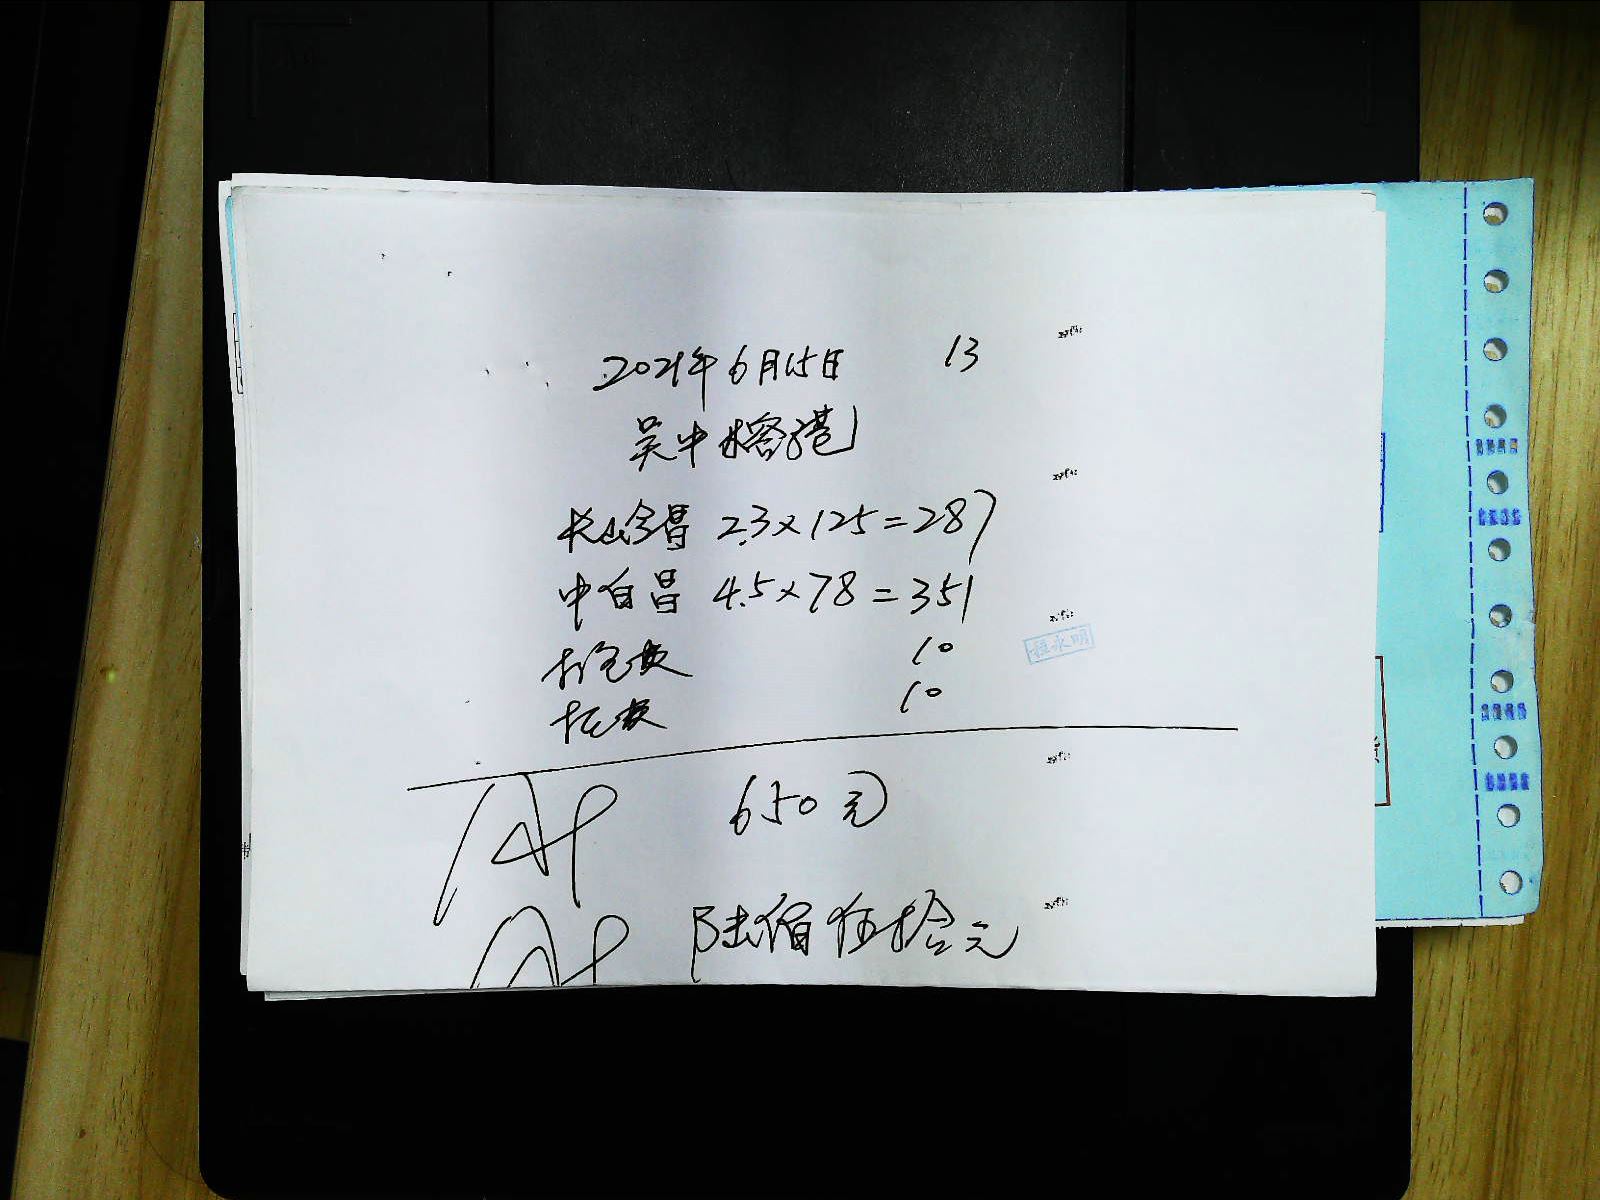 2021年6月15日 13
吴中榕港
长山金昌 2.3×125=287
中白昌 4.5×78=351
打包费 10
托费 10
650元
陆佰伍拾元